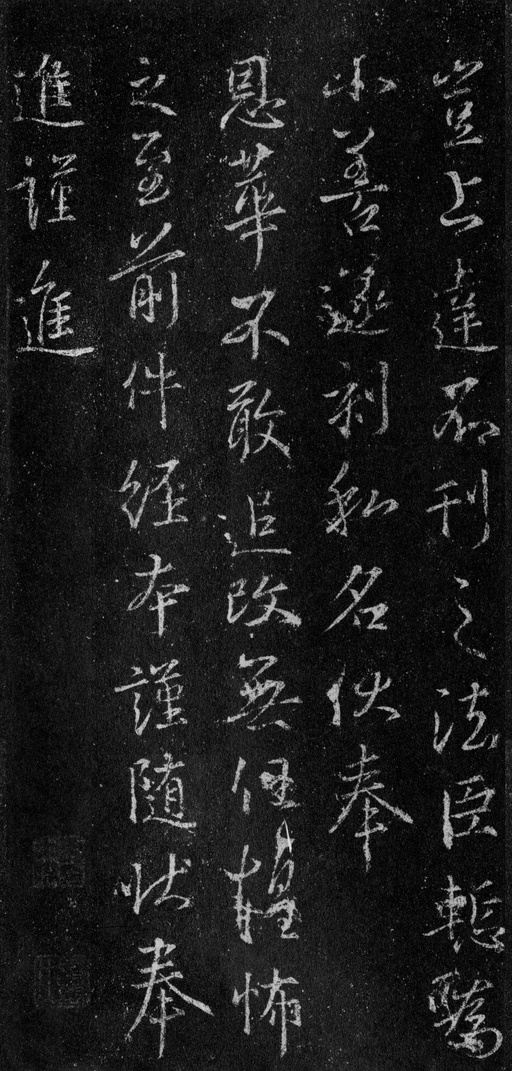 豈上達石刊之法臣輙驕
小善遂刻私名伏奉
恩華不敢追改無任惶怖
之至前件經本謹隨狀奉
進謹進